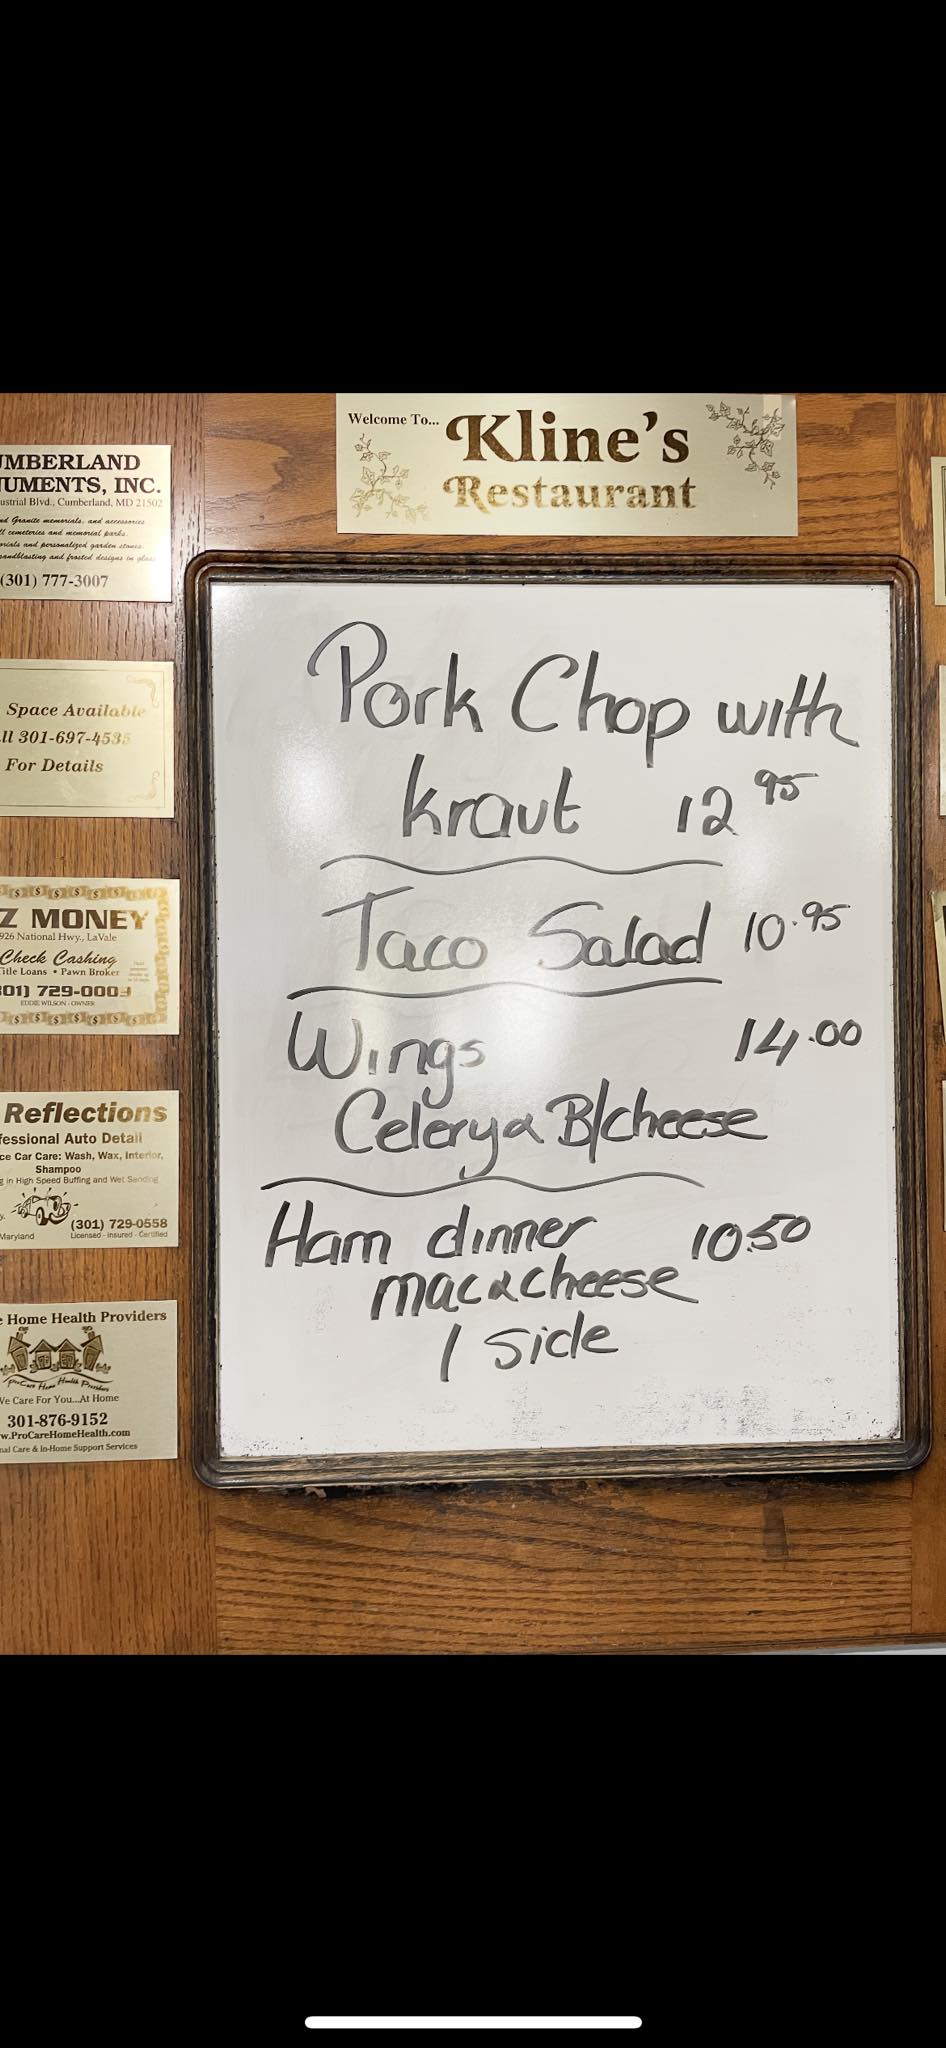 Welcome To...
Kline's
Restaurant
UMBERLAND
NUMENTS, INC.
ustrial Blvd., Cumberland, MD 21502
nd Granite memorials, and accessories
ll cemeteries and memorial parks.
orials and personalized garden stones.
sandblasting and frosted designs in glass
(301) 777-3007
Space Available
ll 301-697-4535
For Details
Z MONEY
926 National Hwy., LaVale
Check Cashing
Title Loans • Pawn Broker
301) 729-0003
EDDIE WILSON - OWNER
Reflections
fessional Auto Detail
ce Car Care: Wash, Wax, Interior,
Shampoo
g in High Speed Buffing and Wet Sanding
(301) 729-0558
Maryland
Licensed - Insured - Certified
e Home Health Providers
ProCare Home Health Providers
We Care For You...At Home
301-876-9152
w.ProCareHomeHealth.com
nal Care & In-Home Support Services
Pork Chop with
kraut 12 95
Taco Salad 10.95
Wings 14.00
Celery & B/cheese
Ham dinner 10.50
mac & cheese
1 side